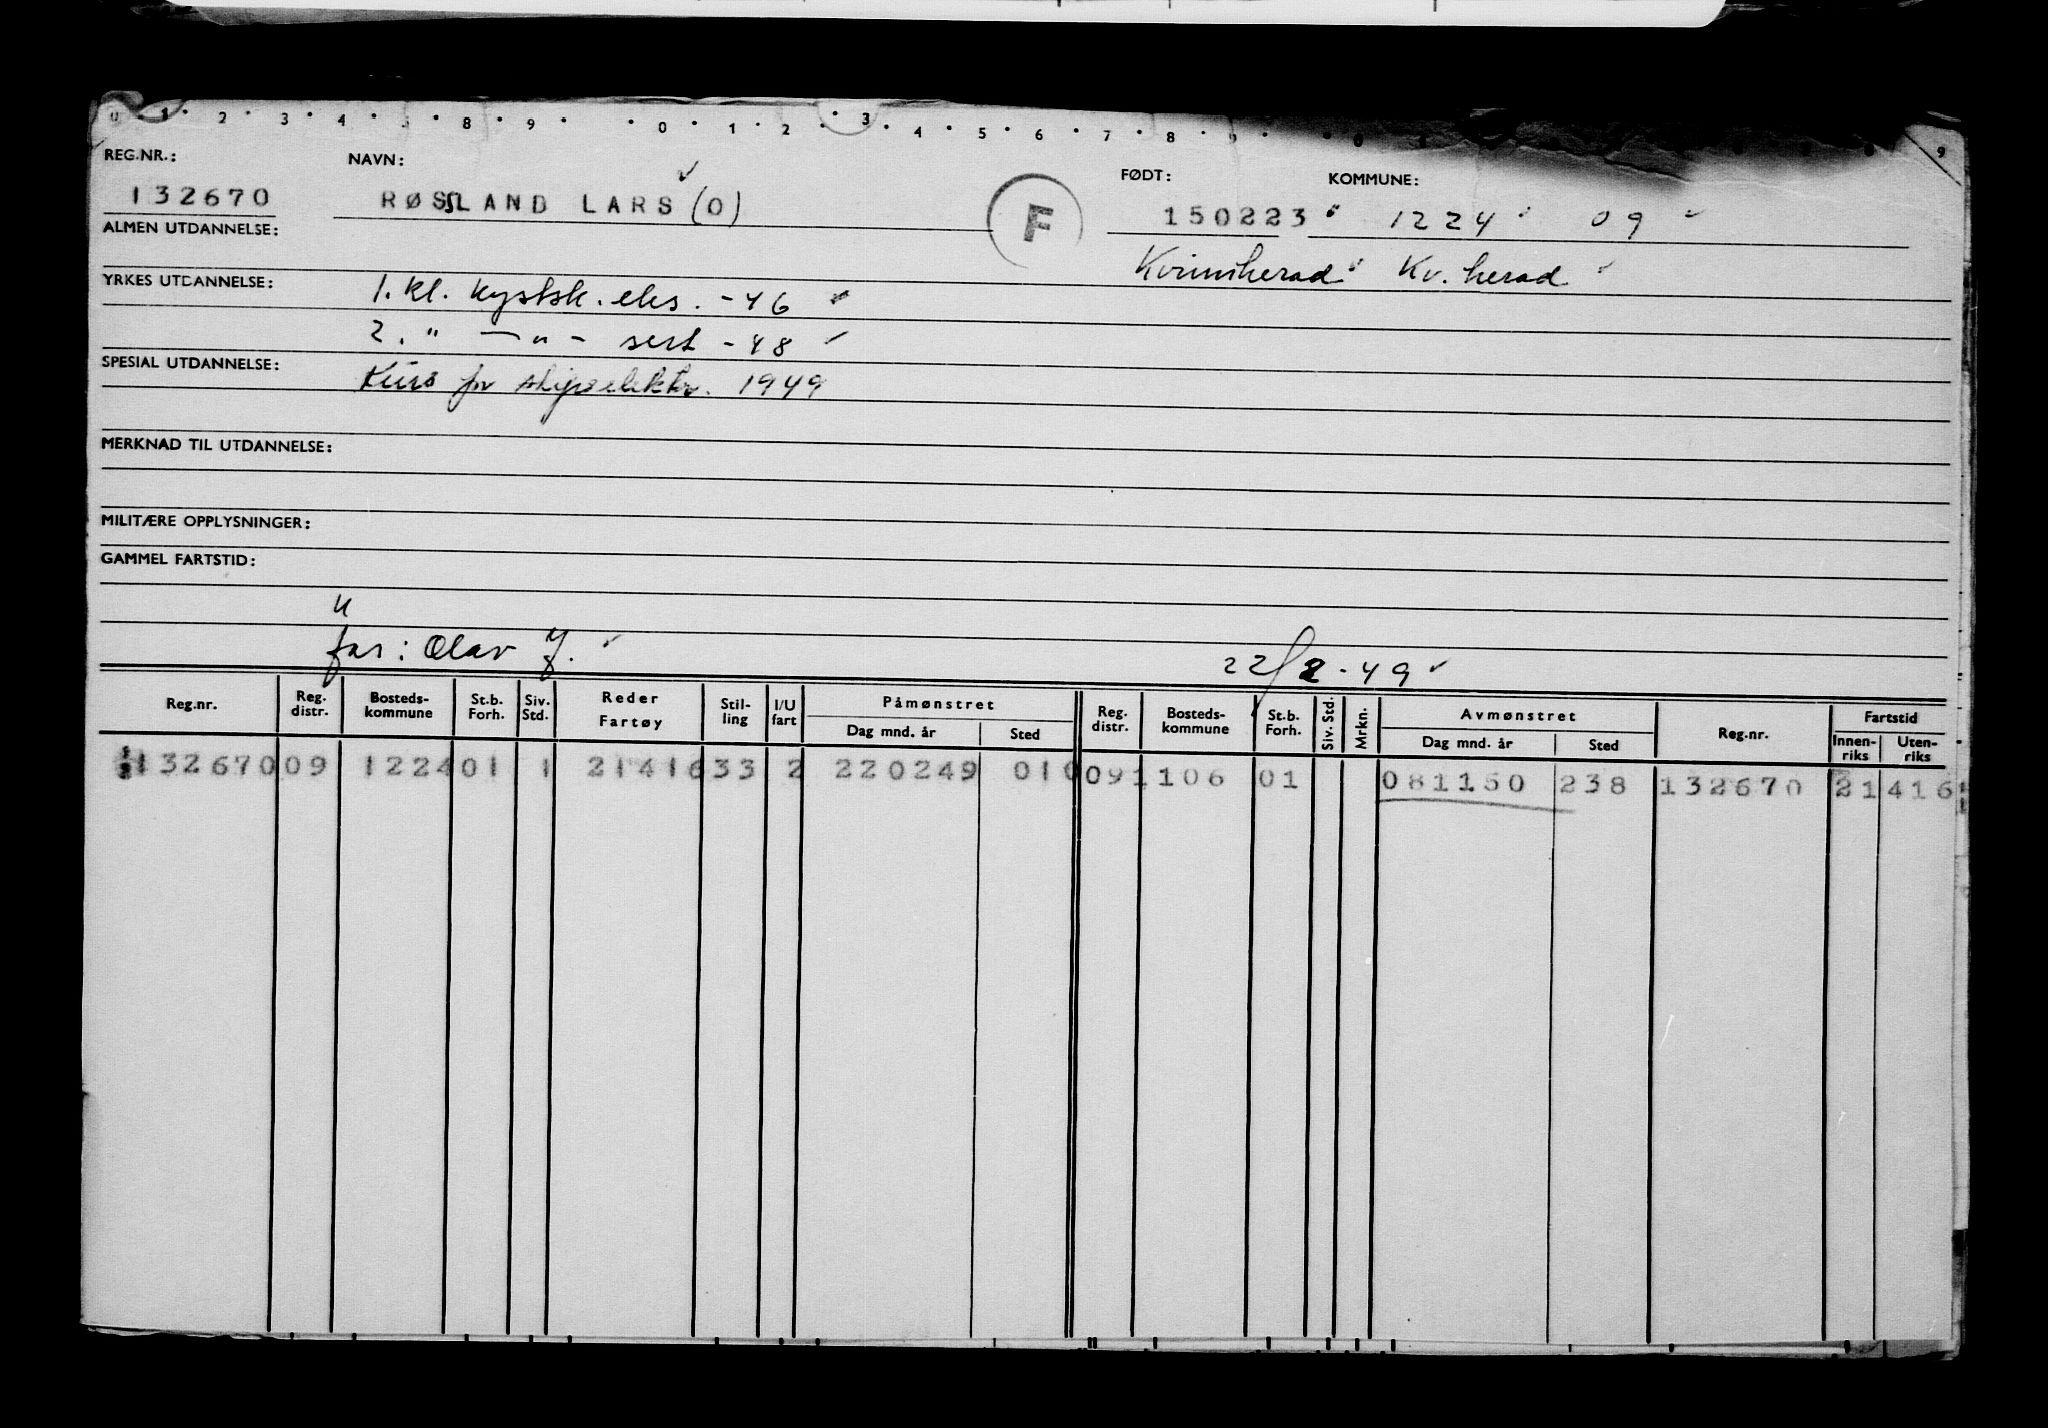 0 · 1 · 2 · 3 · 4 · · 8 · 9 · · 0 · 1 · 2 · 3 · 4 · 5 · 6 · 7 · 8 · 9 · 9
REG.NR.: NAVN: FØDT: KOMMUNE:
132670 RØSSLAND LARS (O) F 150223 1224 09
ALMEN UTDANNELSE: Kvinnherad Kv. herad
YRKES UTDANNELSE: 1. kl. kystsk. eks. - 46
2. " — " - sert - 48
SPESIAL UTDANNELSE: Kurs for skipselektr. 1949
MERKNAD TIL UTDANNELSE:
MILITÆRE OPPLYSNINGER:
GAMMEL FARTSTID:
u
far: Olav J. 22/2-49
Reg.nr. Reg. distr. Bosteds-kommune St.b. Forh. Siv. Std. Reder Fartøy Stil-ling I/U fart Påmønstret Dag mnd. år Sted Reg. distr. Bosteds-kommune St.b. Forh. Siv. Std. Mrkn. Avmønstret Dag mnd. år Sted Reg.nr. Fartstid Innen-riks Uten-riks
132670 09 1224 01 1 21416 33 2 220249 010 09 1106 01 081150 238 132670 21416